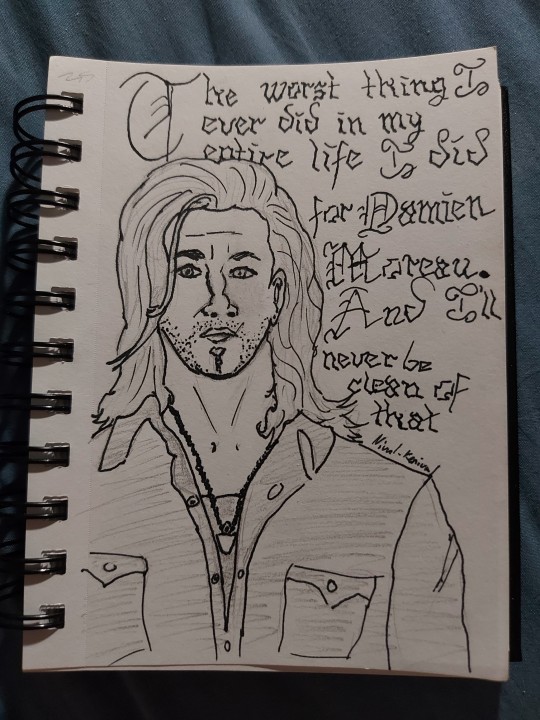 The worst thing I
ever did in my
entire life I did
for Damien
Moreau.
And I'll
never be
clean of
that